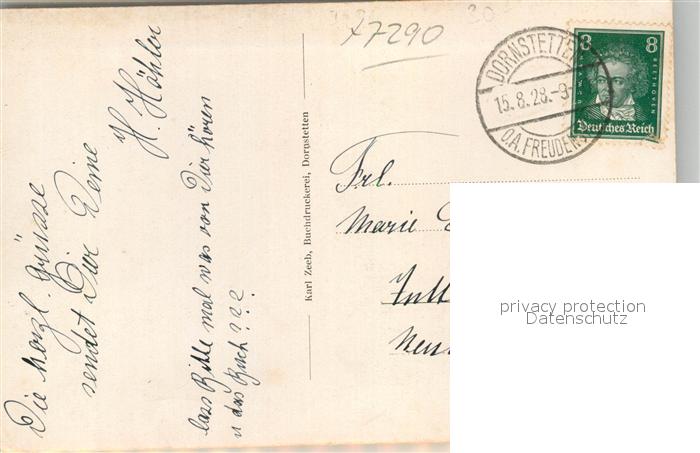 Die herzl. Grüsse
sendet Dir Deine
H. Höhler
lass Bitte mal was von Dir hören
u das Buch ???
Karl Zeeb, Buchdruckerei, Dornstetten
A7290
DORNSTETTEN
15.8.28.-9
O.A. FREUDENS
8 8
L.V. BEETHOVEN
Deutsches Reich
Frl.
Marie
privacy protection
Datenschutz